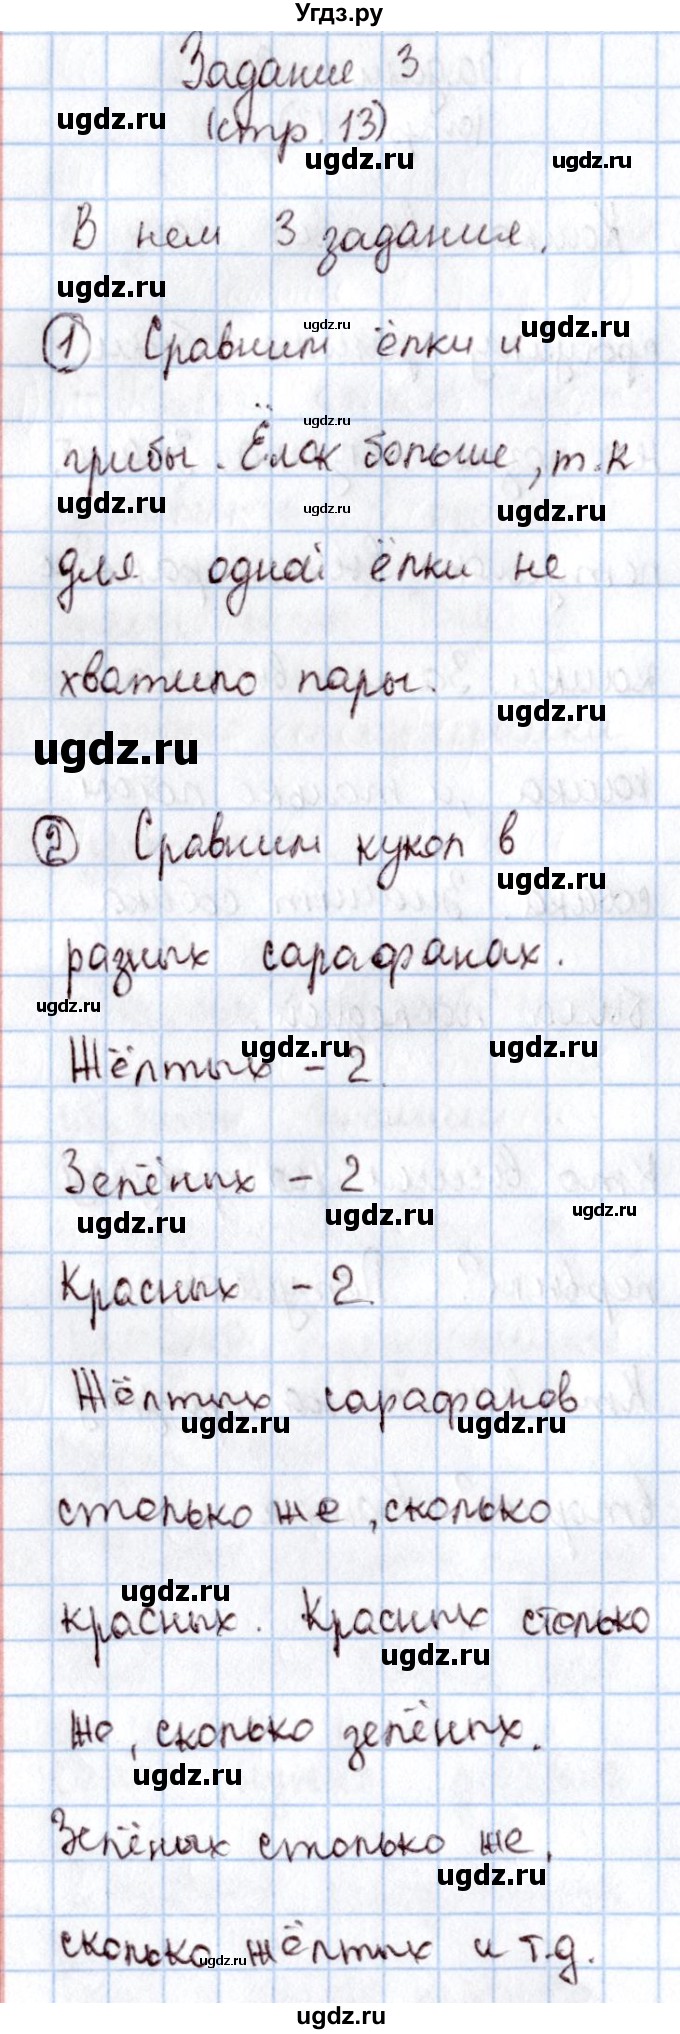 Угдз.ру
Задание 3
ugdz.ru
(стр. 13)
ugdz.ru
ugdz.ru
В нем 3 задания.
ugdz.ru
ugdz.ru
ugdz.ru
1 Сравним ёлки и
ugdz.ru
грибы. Ёлок больше, т.к
ugdz.ru
ugdz.ru
ugdz.ru
для одной ёлки не
хватило пары.
ugdz.ru
ugdz.ru
2 Сравним кукол в
ugdz.ru
разных сарафанах.
ugdz.ru
ugdz.ru
ugdz.ru
Жёлтых - 2
Зелёных - 2
ugdz.ru
ugdz.ru
ugdz.ru
Красных - 2
Жёлтых сарафанов
ugdz.ru
ugdz.ru
столько же, сколько
ugdz.ru
красных. Красных столько
ugdz.ru
же, сколько зелёных.
ugdz.ru
Зелёных столько же,
ugdz.ru
сколько жёлтых и т.д.
ugdz.ru
ugdz.ru